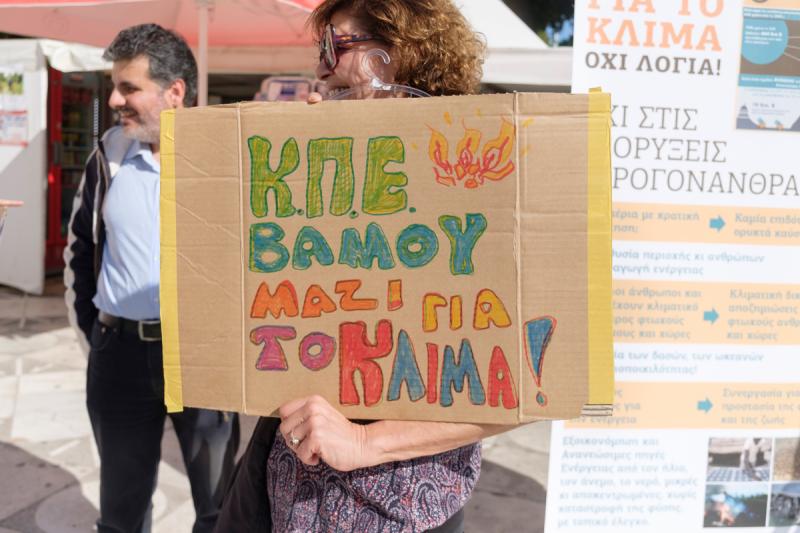 Κ.Π.Ε.
ΒΑΜΟΥ
ΜΑΖΙ ΓΙΑ
ΤΟ ΚΛΙΜΑ!
ΓΙΑ ΤΟ
ΚΛΙΜΑ
ΟΧΙ ΛΟΓΙΑ!
ΧΙ ΣΤΙΣ
ΟΡΥΞΕΙΣ
ΡΟΓΟΝΑΝΘΡΑ
έρια με κρατική
Καμία επιδό
ορυκτά καύσ
υσία περιοχής κι ανθρώπων
αγωγή ενέργειας
οι άνθρωποι και
έχουν κλιματικό
ρος φτωχούς
μους και χώρες
Κλιματική δικ
αποζημιώσεις
φτωχούς ανθρ
και χώρες
ία των δασών, των ωκεανών
ιοποικιλότητας!
ς για
την ενέργεια
Συνεργασία γι
προστασία της
και της ζωής
Εξοικονόμηση και
Ανανεώσιμες πηγές
Ενέργειας από τον ήλιο,
τον άνεμο, το νερό, μικρές
κι αποκεντρωμένες, χωρίς
καταστροφή της φύσης,
με τοπικό έλεγχο.